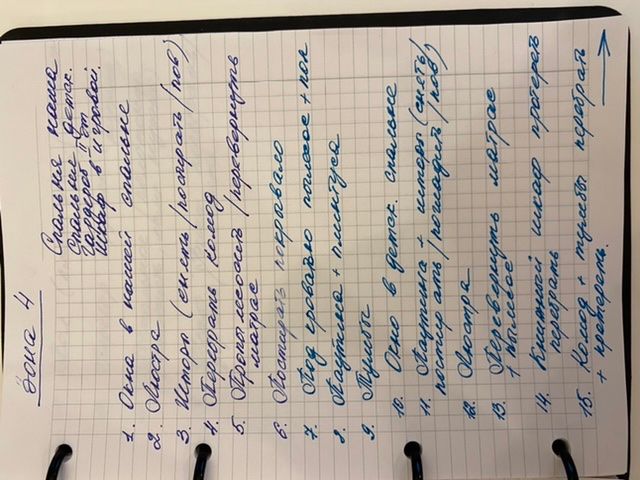 Зона 4
Спальня наша
Спальня детск.
Гардероб 1 эт
Шкаф в игровой.
1. Окна в нашей спальне
2. Люстра
3. Шторы (снять/постирать/пов)
4. Перебрать комод
5. Пропылесосить/перевернуть
матрас
6. Постирать покрывало
7. Под кроватью пылесос + пол
8. Паутина + плинтуса
9. Тумбы
10. Окно в детск. спальне
11. Паутина + шторы (снять/
постирать/погладить/пов)
12. Люстра
13. Перевернуть матрас
+ пылесос
14. Книжный шкаф протереть
перебрать
15. Комод + тумбы перебрать
+ протереть.
→